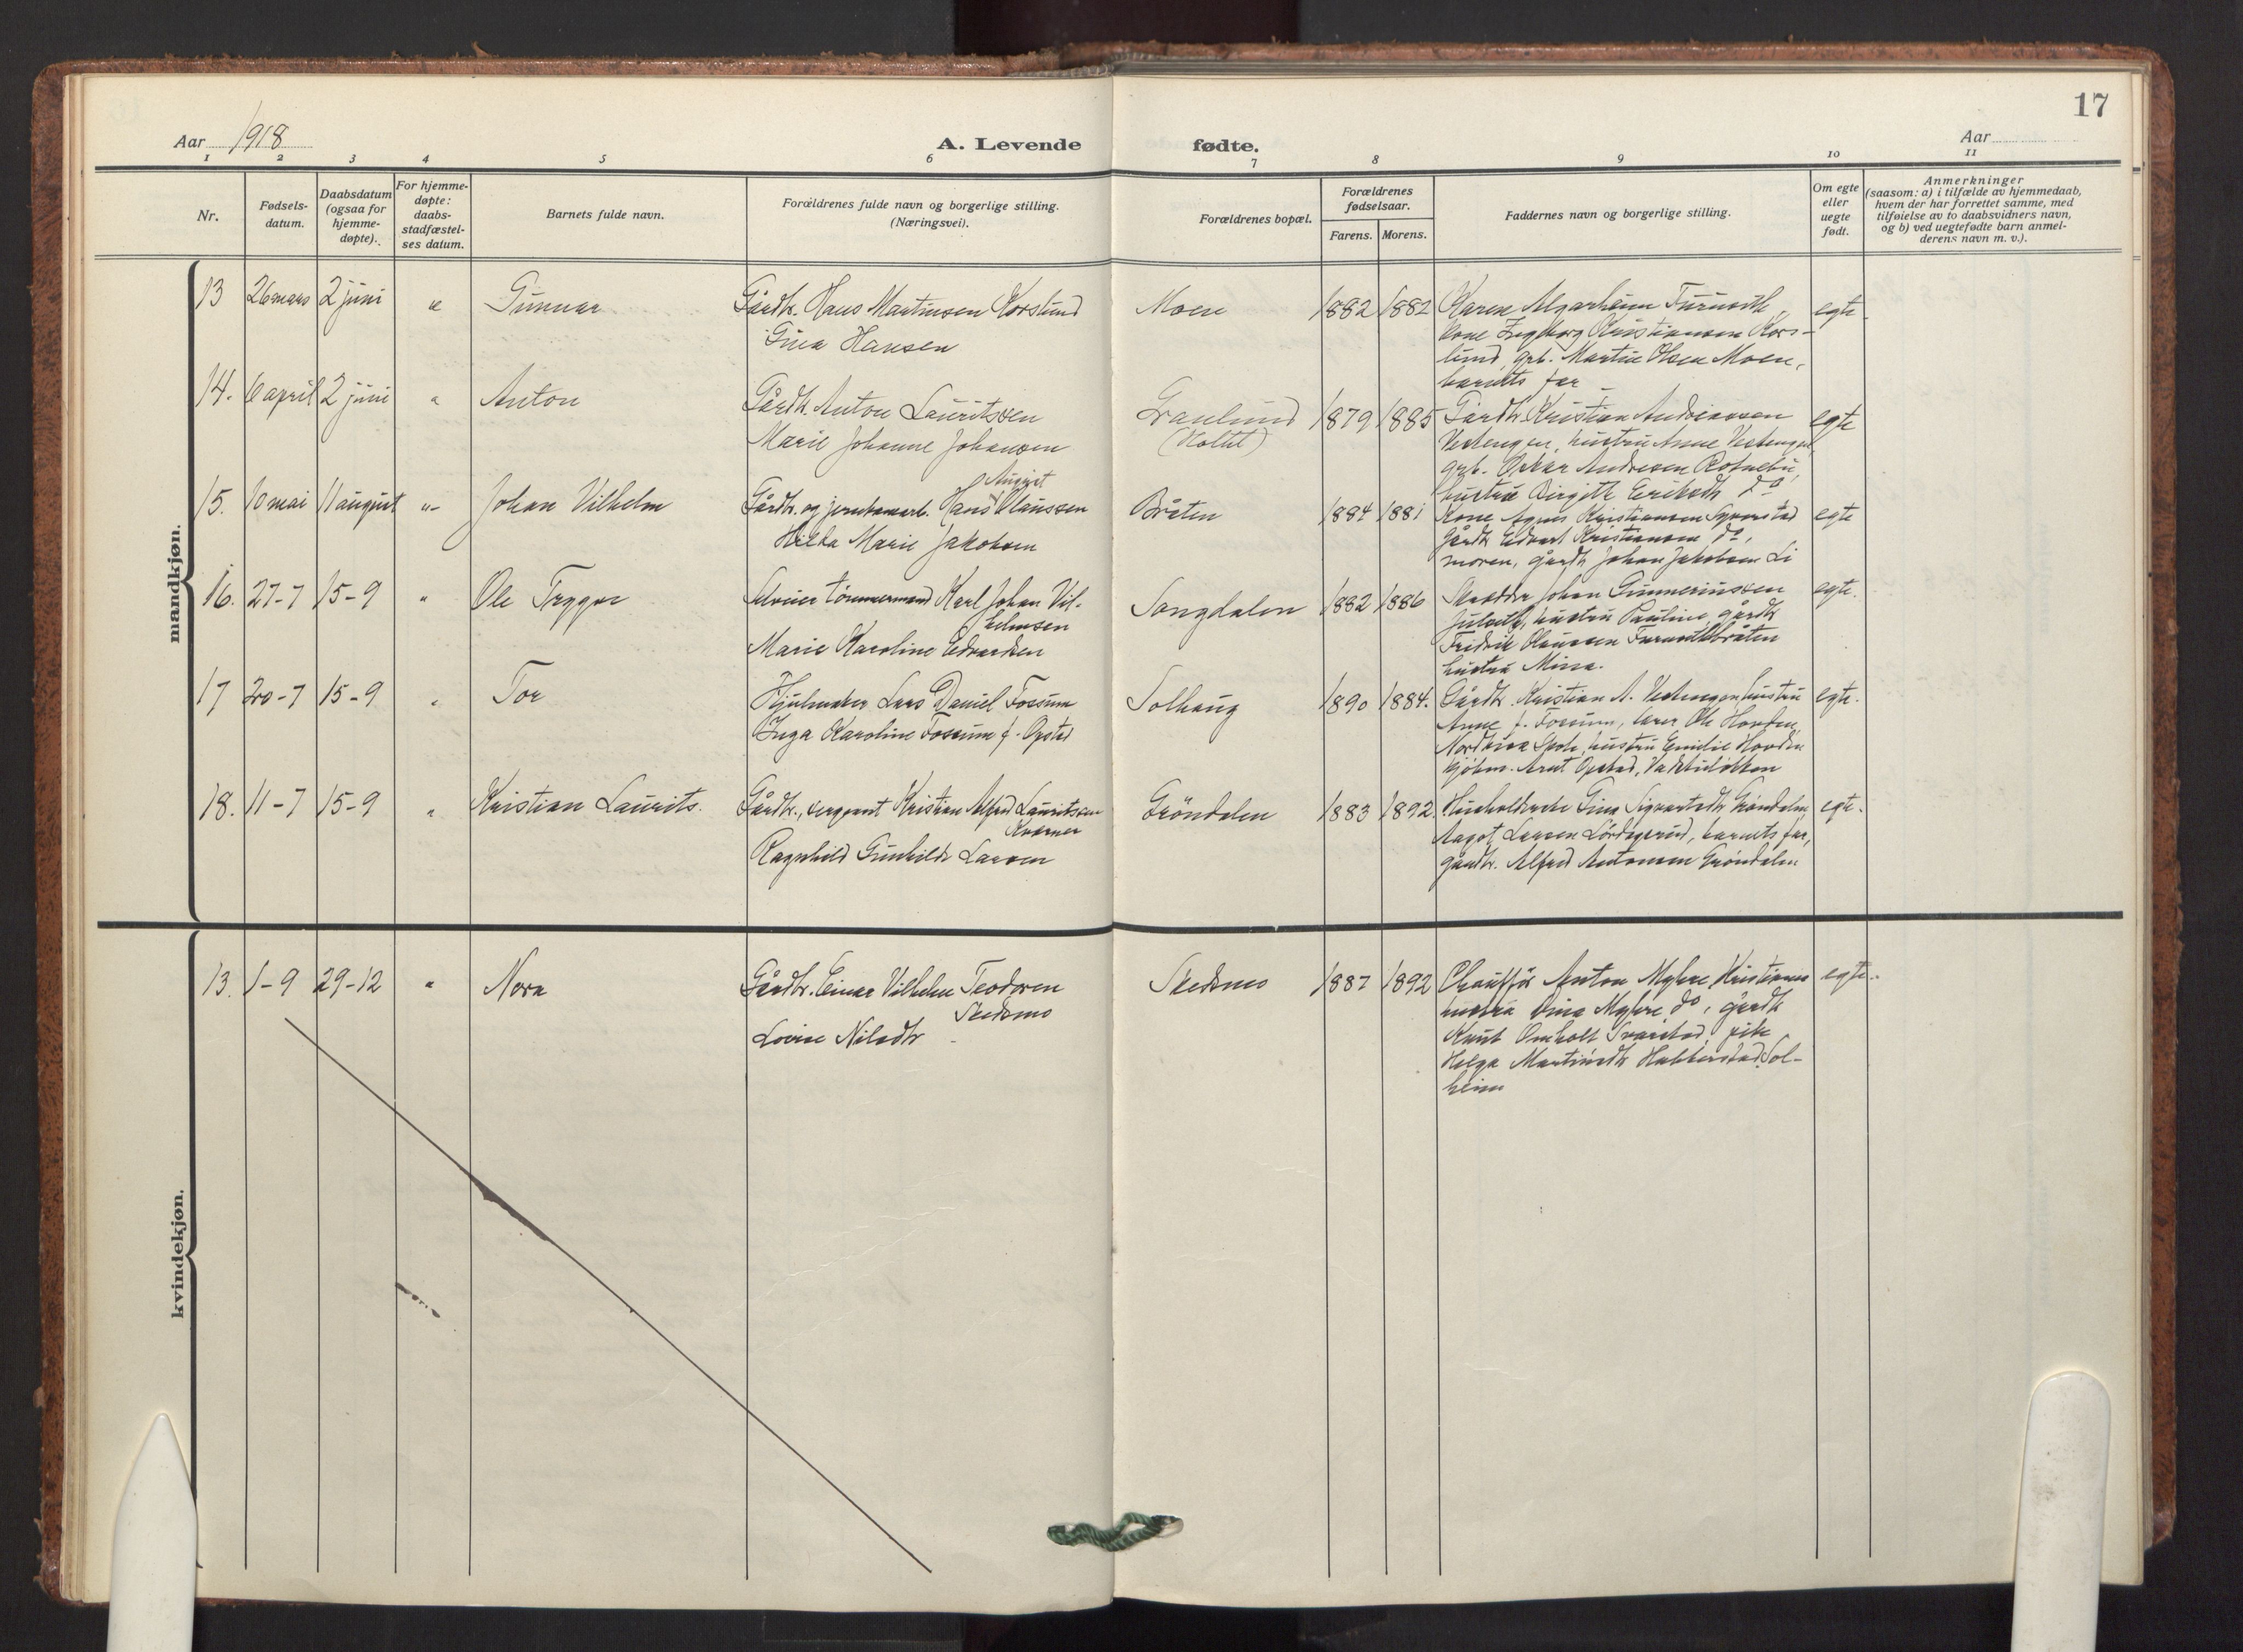 17
Aar 1918
A. Levende fødte.
Aar
1 2 3 4 5 6 7 8 9 10 11
Nr.
Fødsels-
datum.
Daabsdatum
(ogsaa for
hjemme-
døpte).
For hjemme-
døpte:
daabs-
stadfæstel-
ses datum.
Barnets fulde navn.
Forældrenes fulde navn og borgerlige stilling.
(Næringsvei).
Forældrenes bopæl.
Forældrenes
fødselsaar.
Farens. Morens.
Faddernes navn og borgerlige stilling.
Om egte
eller
uegte
født.
Anmerkninger
(saasom: a) i tilfælde av hjemmedaab,
hvem der har forrettet samme, med
tilføielse av to daabsvidners navn,
og b) ved uegtefødte barn anmel-
derens navn m. v.).
mandkjøn.
13 26 mars 2 juni " Gunnar
Gårdbr. Hans Martinsen Korslund
Gina Hansen
Moen 1882 1882
Karen Algarheim Furuset
kone Ingborg Kristiansen Kors-
lund, grb. Martin Olsen Moen,
barnets far
egte
14. 6 april 2 juni " Anton
Gårdbr. Anton Lauritssen
Marie Johanne Johansen
Granlund
(Holtet)
1879 1885
Gårdbr. Kristian Andreassen
Vestengen, hustru Anne Vestengen,
grb. Oskar Andresen
hustru Birgitte Eriksdtr do
egte
15. 10 mai 11 august "- Johan Vilhelm
August
Gårdbr. og jernbanearb. Hans Claussen
Hilda Marie Jakobsen
Bråten 1884 1881
Kone Agnes Kristiansen
Gårdb Edvart Kristiansen do,
moren, gårdb Johan Jakobsen Li
egte
16. 27-7 15-9 " Ole Trygve
tömmermand Karl Johan Vil-
helmsen
Marie Karoline Edvardsen
Sangdalen 1882 1886
Skrædder Johan Gunneriussen
hustru Pauline, gårdb
Fridrik Olaussen Furusethbråten
hustru Mina.
egte.
17 20-7 15-9 " Tor
Hjulmaker Lars Daniel Fossum
Inga Karoline Fossum f. Opstad
Solhaug 1890 1884.
Gårdbr. Kristian A. Vestengen, hustru
Anne f. Fossum, lærer Ole Hovden,
Skole, hustru Emilie Hovden
kjöbm. Arnt Opstad,
egte.
18. 11-7 15-9 " Kristian Laurits.
Gårdbr., sergeant Kristian Alfred Lauritssen
Kværner
Ragnhild Gunhilde Larsen
Gröndalen 1883 1892.
Husholderske Gina Sigvartsdtr Gröndalen
Aagot Larsen Lördagsrud, barnets far,
gårdbr. Alfred Antonsen Gröndalen
egte.
kvindekjøn.
13. 1-9 29-12 " Nora
Gårdbr. Einar Vilhelm Teodorsen
Skedsmo
Lovise Nilsdtr
Skedsmo 1887 1892
Chauffør Anton Myhre Kristiania
hustru Dina Myhre do, gårdb
Knut Omholt pike
Helga Martinsdtr Habberstad Sol-
heim
egte.